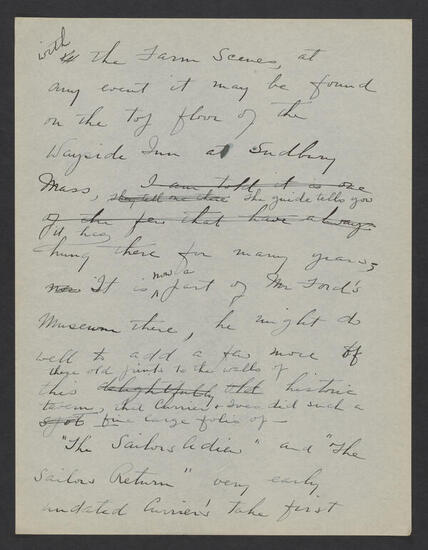 with
the Farm Scenes, at
any event it may be found
on the top floor of the
Wayside Inn at Sudbury
Mass, I am told it is one
they tell me that The guide tells you
of the few that have always
it has
hung there for many years;
now a
It is part of Mr Ford's
Museum there, he might do
well to add a few more of
these old prints to the walls of
this delightfully historic
tavern, that Currier & Ives did such a
fine large folio of —
"The Sailors Adieu" and "The
Sailors Return" very early
undated Currier's take first